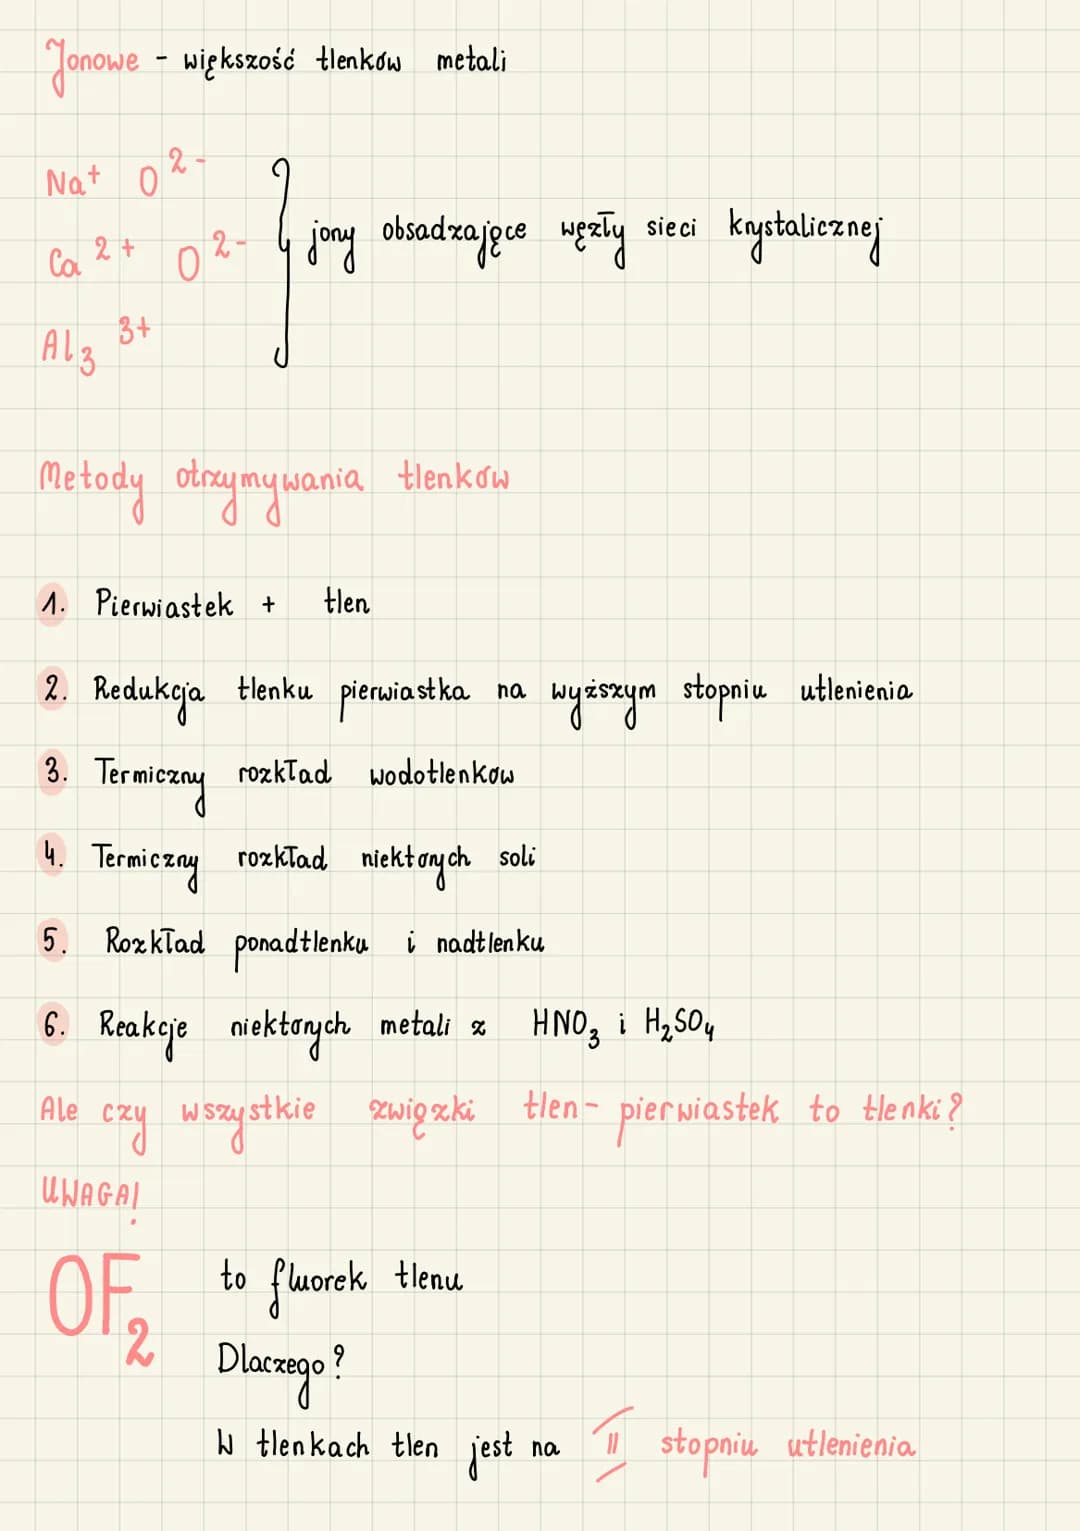 Jonowe - większość tlenków metali
Na⁺ O²⁻
Ca²⁺ O²⁻
jony obsadzające węzły sieci krystalicznej
Al₃ ³⁺
Metody otrzymywania tlenków
1. Pierwiastek + tlen
2. Redukcja tlenku pierwiastka na wyższym stopniu utlenienia
3. Termiczny rozkład wodotlenków
4. Termiczny rozkład niektórych soli
5. Rozkład ponadtlenku i nadtlenku
6. Reakcje niektórych metali z HNO₃ i H₂SO₄
Ale czy wszystkie związki tlen- pierwiastek to tlenki?
UWAGA!
OF₂ to fluorek tlenu
Dlaczego?
W tlenkach tlen jest na II stopniu utlenienia